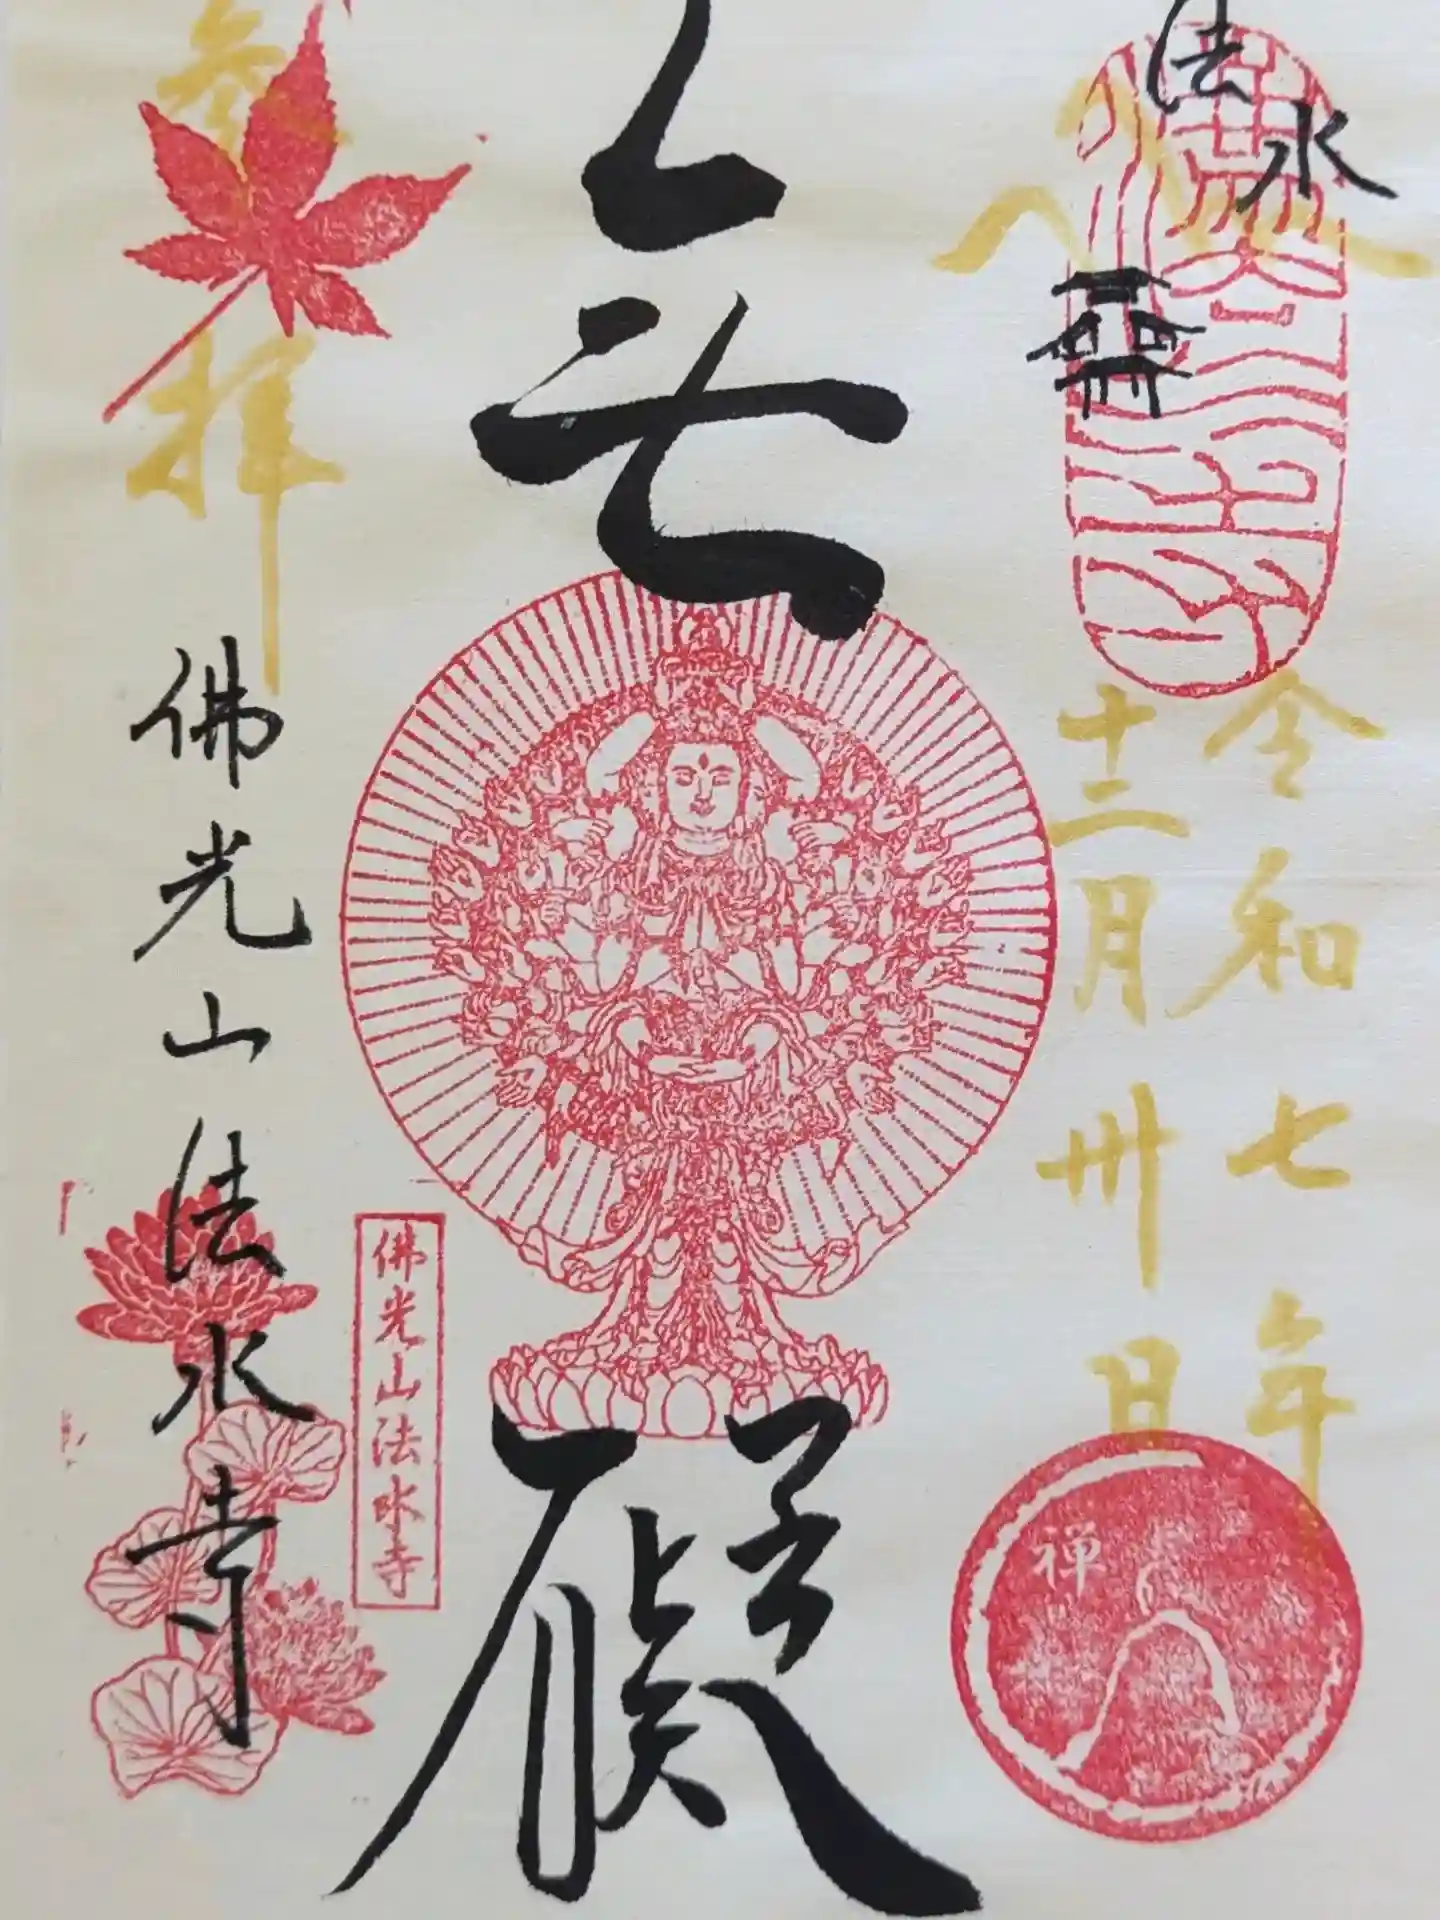 法水
令和七年
十二月卅日
禅
无
礙
佛光山法水寺
参拝
佛光山法水寺